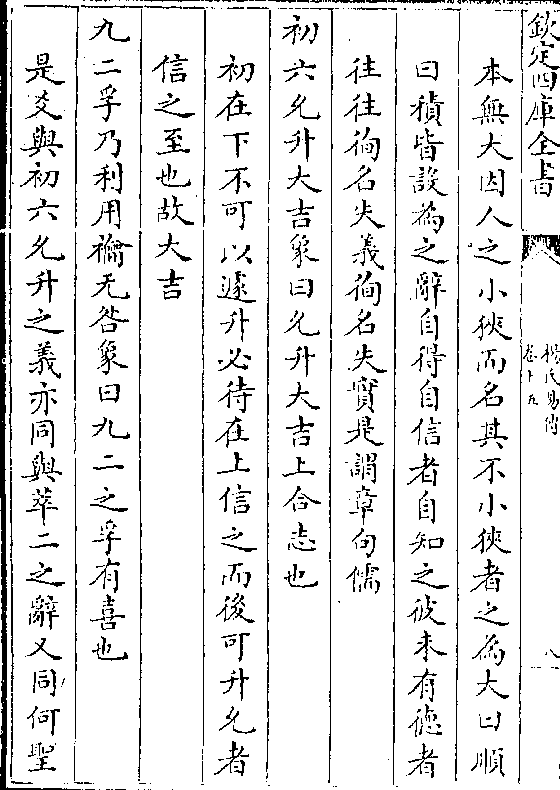 欽定四庫全書
楊氏易傳
卷十五
八
本無大因人之小狹而名其不小狹者之為大曰順
曰積皆設為之辭自得自信者自知之彼未有德者
往往徇名失義徇名失實是謂章句儒
初六允升大吉象曰允升大吉上合志也
初在下不可以遽升必待在上信之而後可升允者
信之至也故大吉
九二孚乃利用禴无咎象曰九二之孚有喜也
是爻與初六允升之義亦同與萃二之辭又同何聖